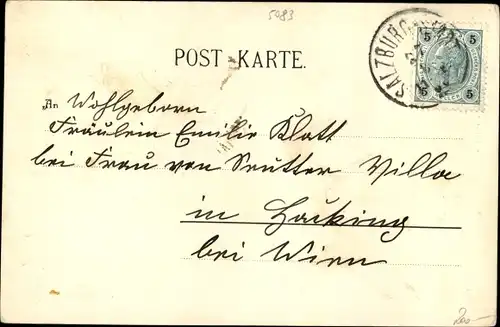 5083
POST KARTE.
SALZBURG STADT
5 5
5 5
An Wohlgeborn
Fräulein Emilie Klatt
bei Frau von Seutter Villa
in Hacking
bei Wien